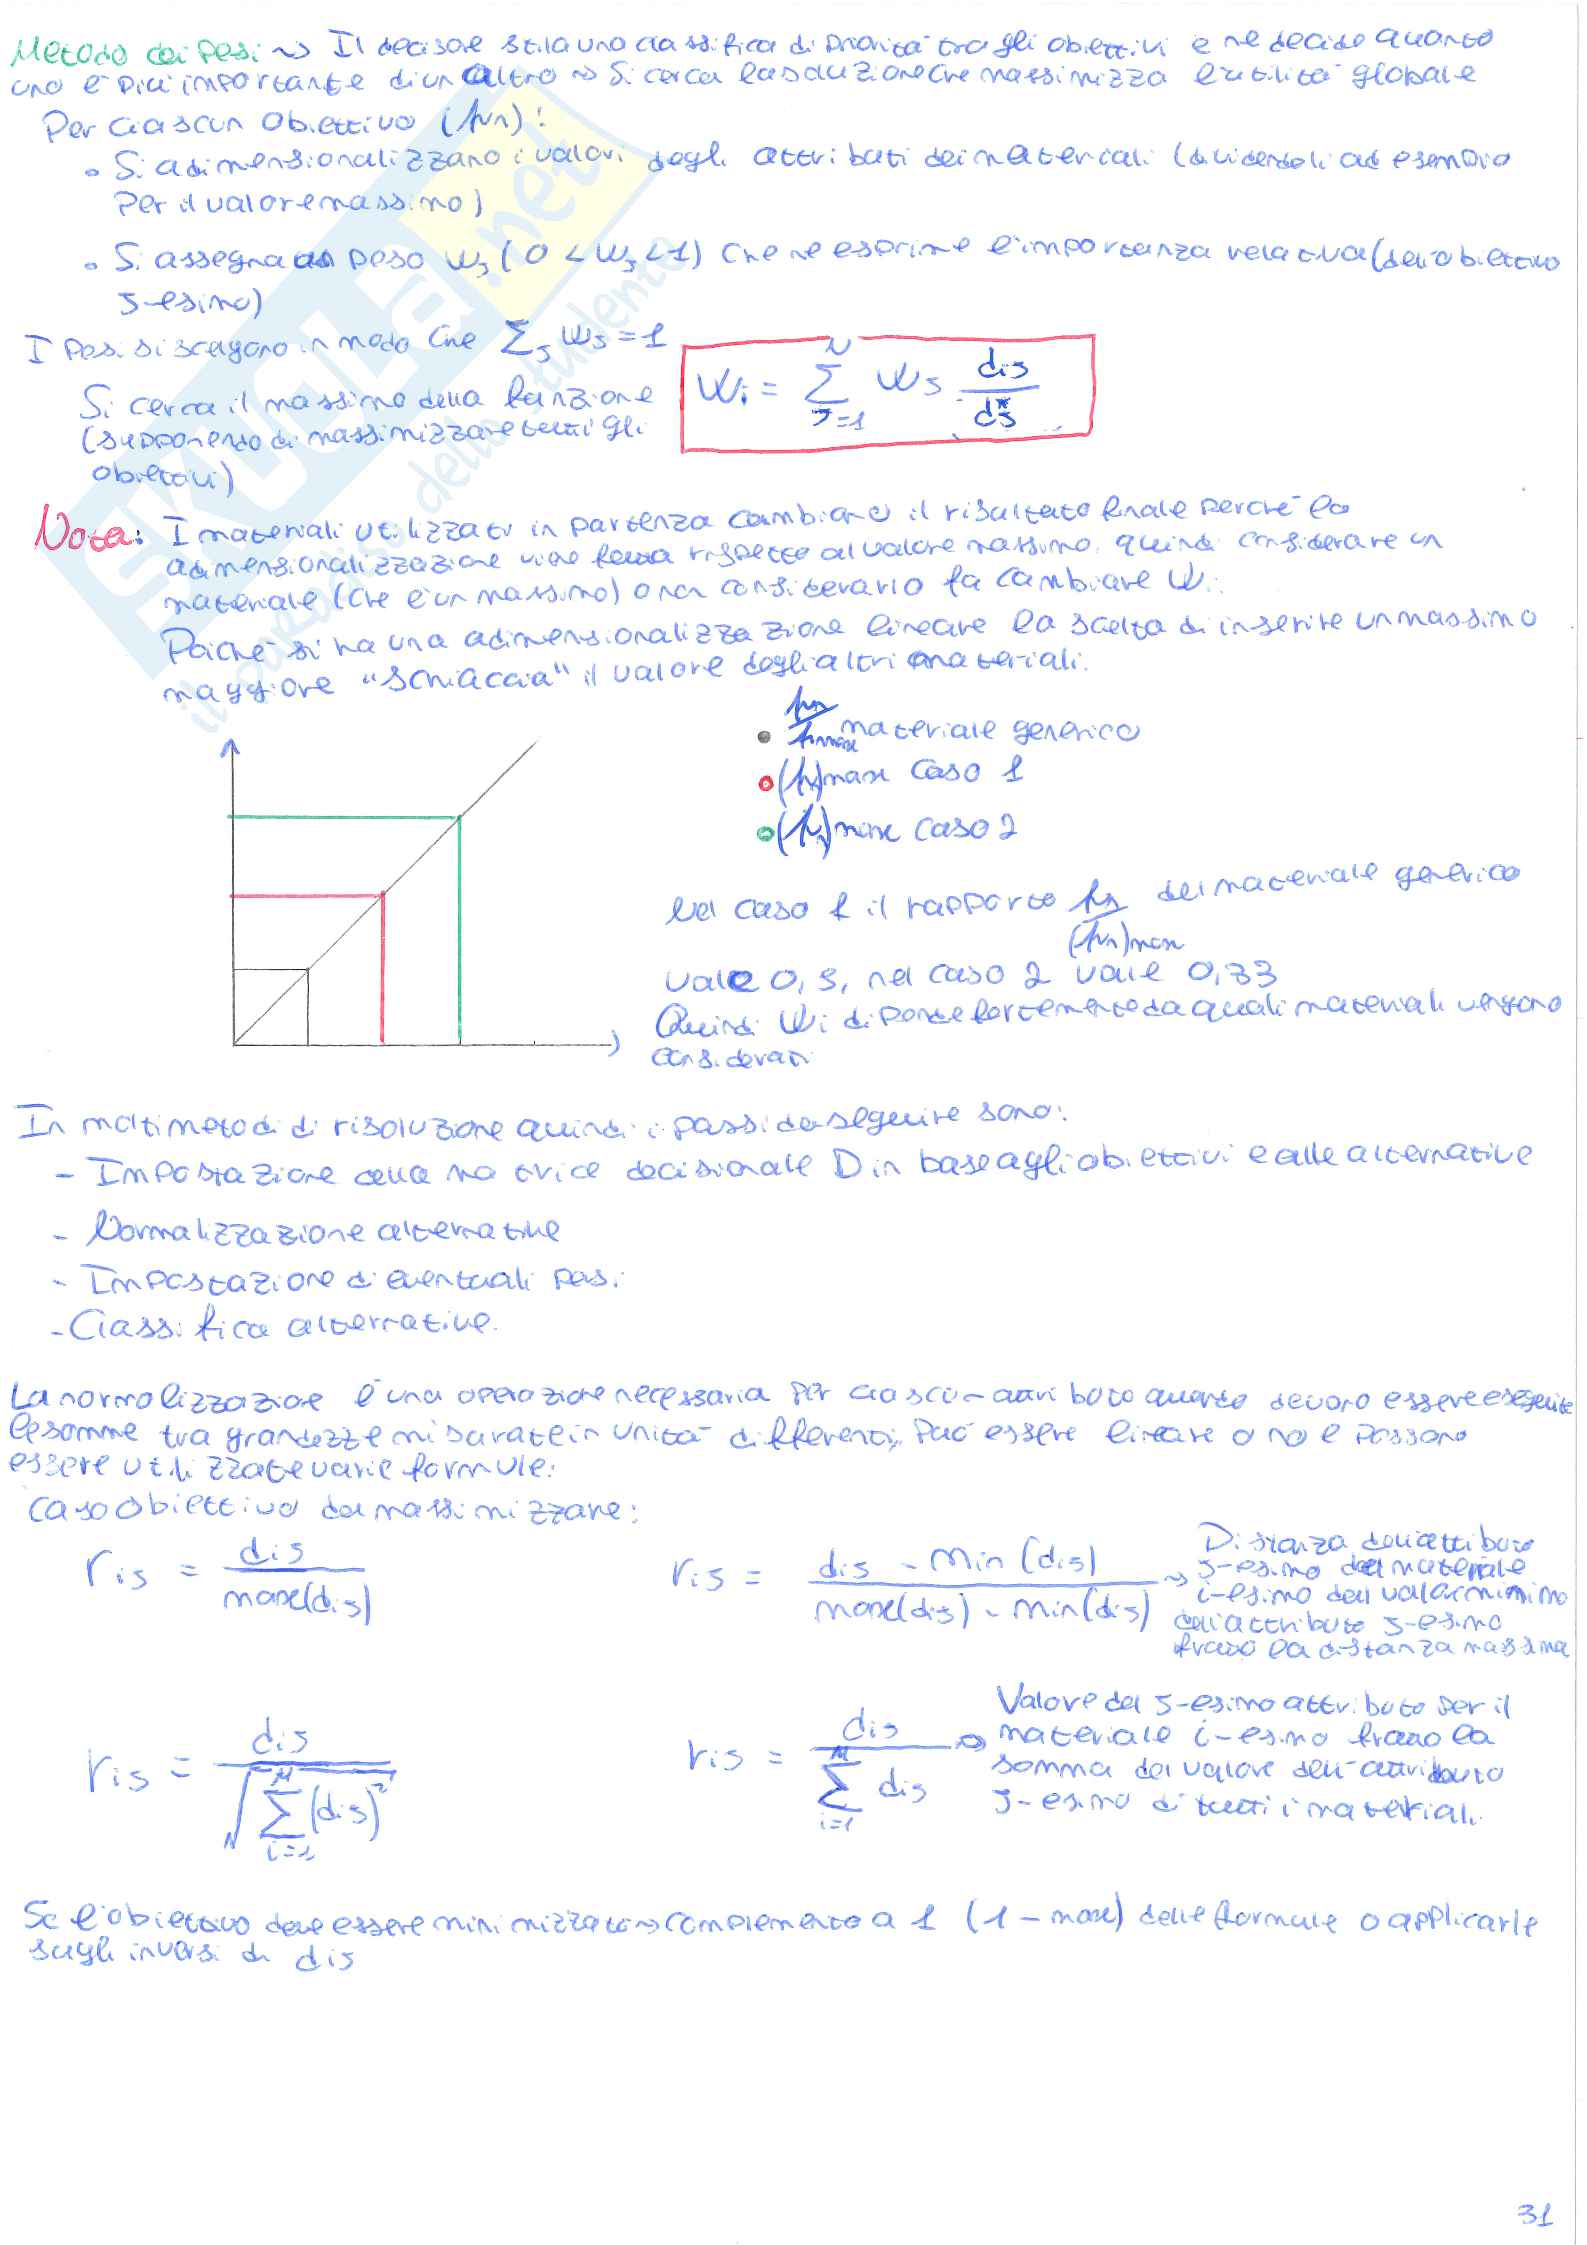 Metodo dei pesi ~> Il decisore stila una classifica di priorità tra gli obiettivi e ne decide quanto
uno è più importante di un altro ~> Si cerca la soluzione che massimizza l'utilità globale
Per ciascun obiettivo (μn):
• Si adimensionalizzano i valori degli attributi dei materiali (dividendoli ad esempio
per il valore massimo)
• Si assegna un peso wj (0 < wj < 1) che ne esprime l'importanza relativa (dell'obiettivo
j-esimo)
I pesi si scelgono in modo che Σj wj = 1
Wi = Σ_{j=1}^{N} wj dij / dj*
Si cerca il massimo della funzione
(supponendo di massimizzare tutti gli
obiettivi)
Nota: I materiali utilizzati in partenza cambiano il risultato finale perché la
adimensionalizzazione viene fatta rispetto al valore massimo, quindi considerare un
materiale (che è un massimo) o non considerarlo fa cambiare Wi.
Poiché si ha una adimensionalizzazione lineare la scelta di inserire un massimo
maggiore "schiaccia" il valore degli altri materiali.
• μn / μnmax materiale generico
• (μn)max caso 1
• (μn)max caso 2
Nel caso 1 il rapporto μn / (μn)max del materiale generico
vale 0,5, nel caso 2 vale 0,33
Quindi Wi dipende fortemente da quali materiali vengono
considerati
In molti metodi di risoluzione quindi i passi da seguire sono:
- Impostazione della matrice decisionale D in base agli obiettivi e alle alternative
- Normalizzazione alternative
- Impostazione di eventuali pesi
- Classifica alternative.
La normalizzazione è una operazione necessaria per ciascun attributo quando devono essere eseguite
le somme tra grandezze misurate in unità differenti, può essere lineare o no e possono
essere utilizzate varie formule:
Caso obiettivo da massimizzare:
rij = dij / max(dij)
rij = (dij - min(dij)) / (max(dij) - min(dij)) ~> Distanza dell'attributo
j-esimo del materiale
i-esimo dal valor minimo
dell'attributo j-esimo
fratto la distanza massima
rij = dij / √(Σ_{i=1}^{M} (dij)²)
rij = dij / Σ_{i=1}^{M} dij ~> Valore del j-esimo attributo per il
materiale i-esimo fratto la
somma del valore dell'attributo
j-esimo di tutti i materiali.
Se l'obiettivo deve essere minimizzato ~> complemento a 1 (1 - max) delle formule o applicarle
sugli inversi di dij
31
SKUOLA.net
il paradiso dello studente